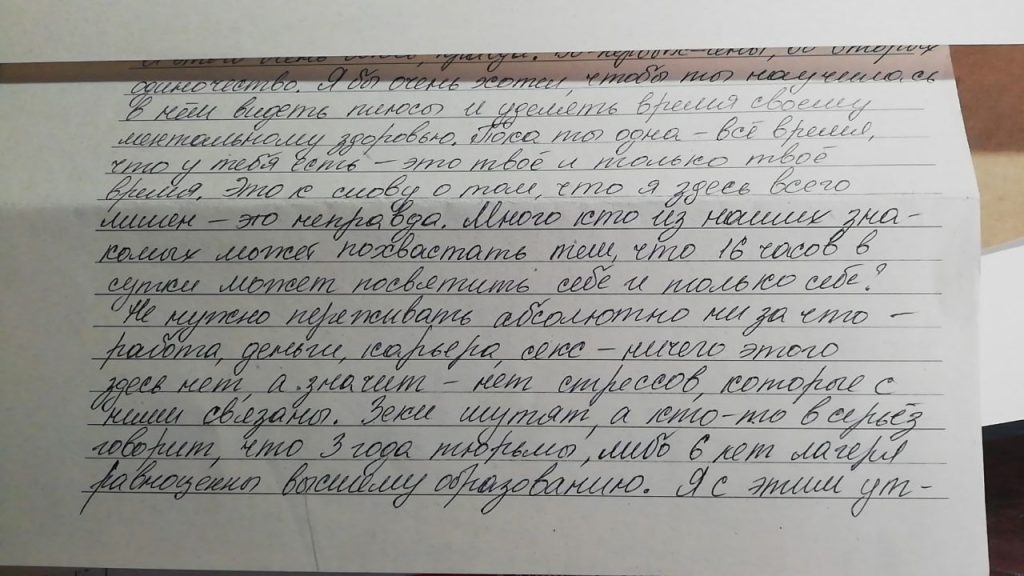 этого очень во-первых во вторых
одиночество. Я бы очень хотел, чтобы ты научилась
в нём видеть плюсы и уделять время своему
ментальному здоровью. Пока ты одна – всё время,
что у тебя есть – это твоё и только твоё
время. Это к слову о том, что я здесь всего
лишен – это неправда. Много кто из наших зна-
комых может похвастать тем, что 16 часов в
сутки может посвятить себе и только себе?
Не нужно переживать абсолютно ни за что –
работа, деньги, карьера, секс – ничего этого
здесь нет, а значит – нет стрессов, которые с
ними связаны. Зеки шутят, а кто-то всерьёз
говорит, что 3 года тюрьмы, либо 6 лет лагеря
равноценны высшему образованию. Я с этим ут-